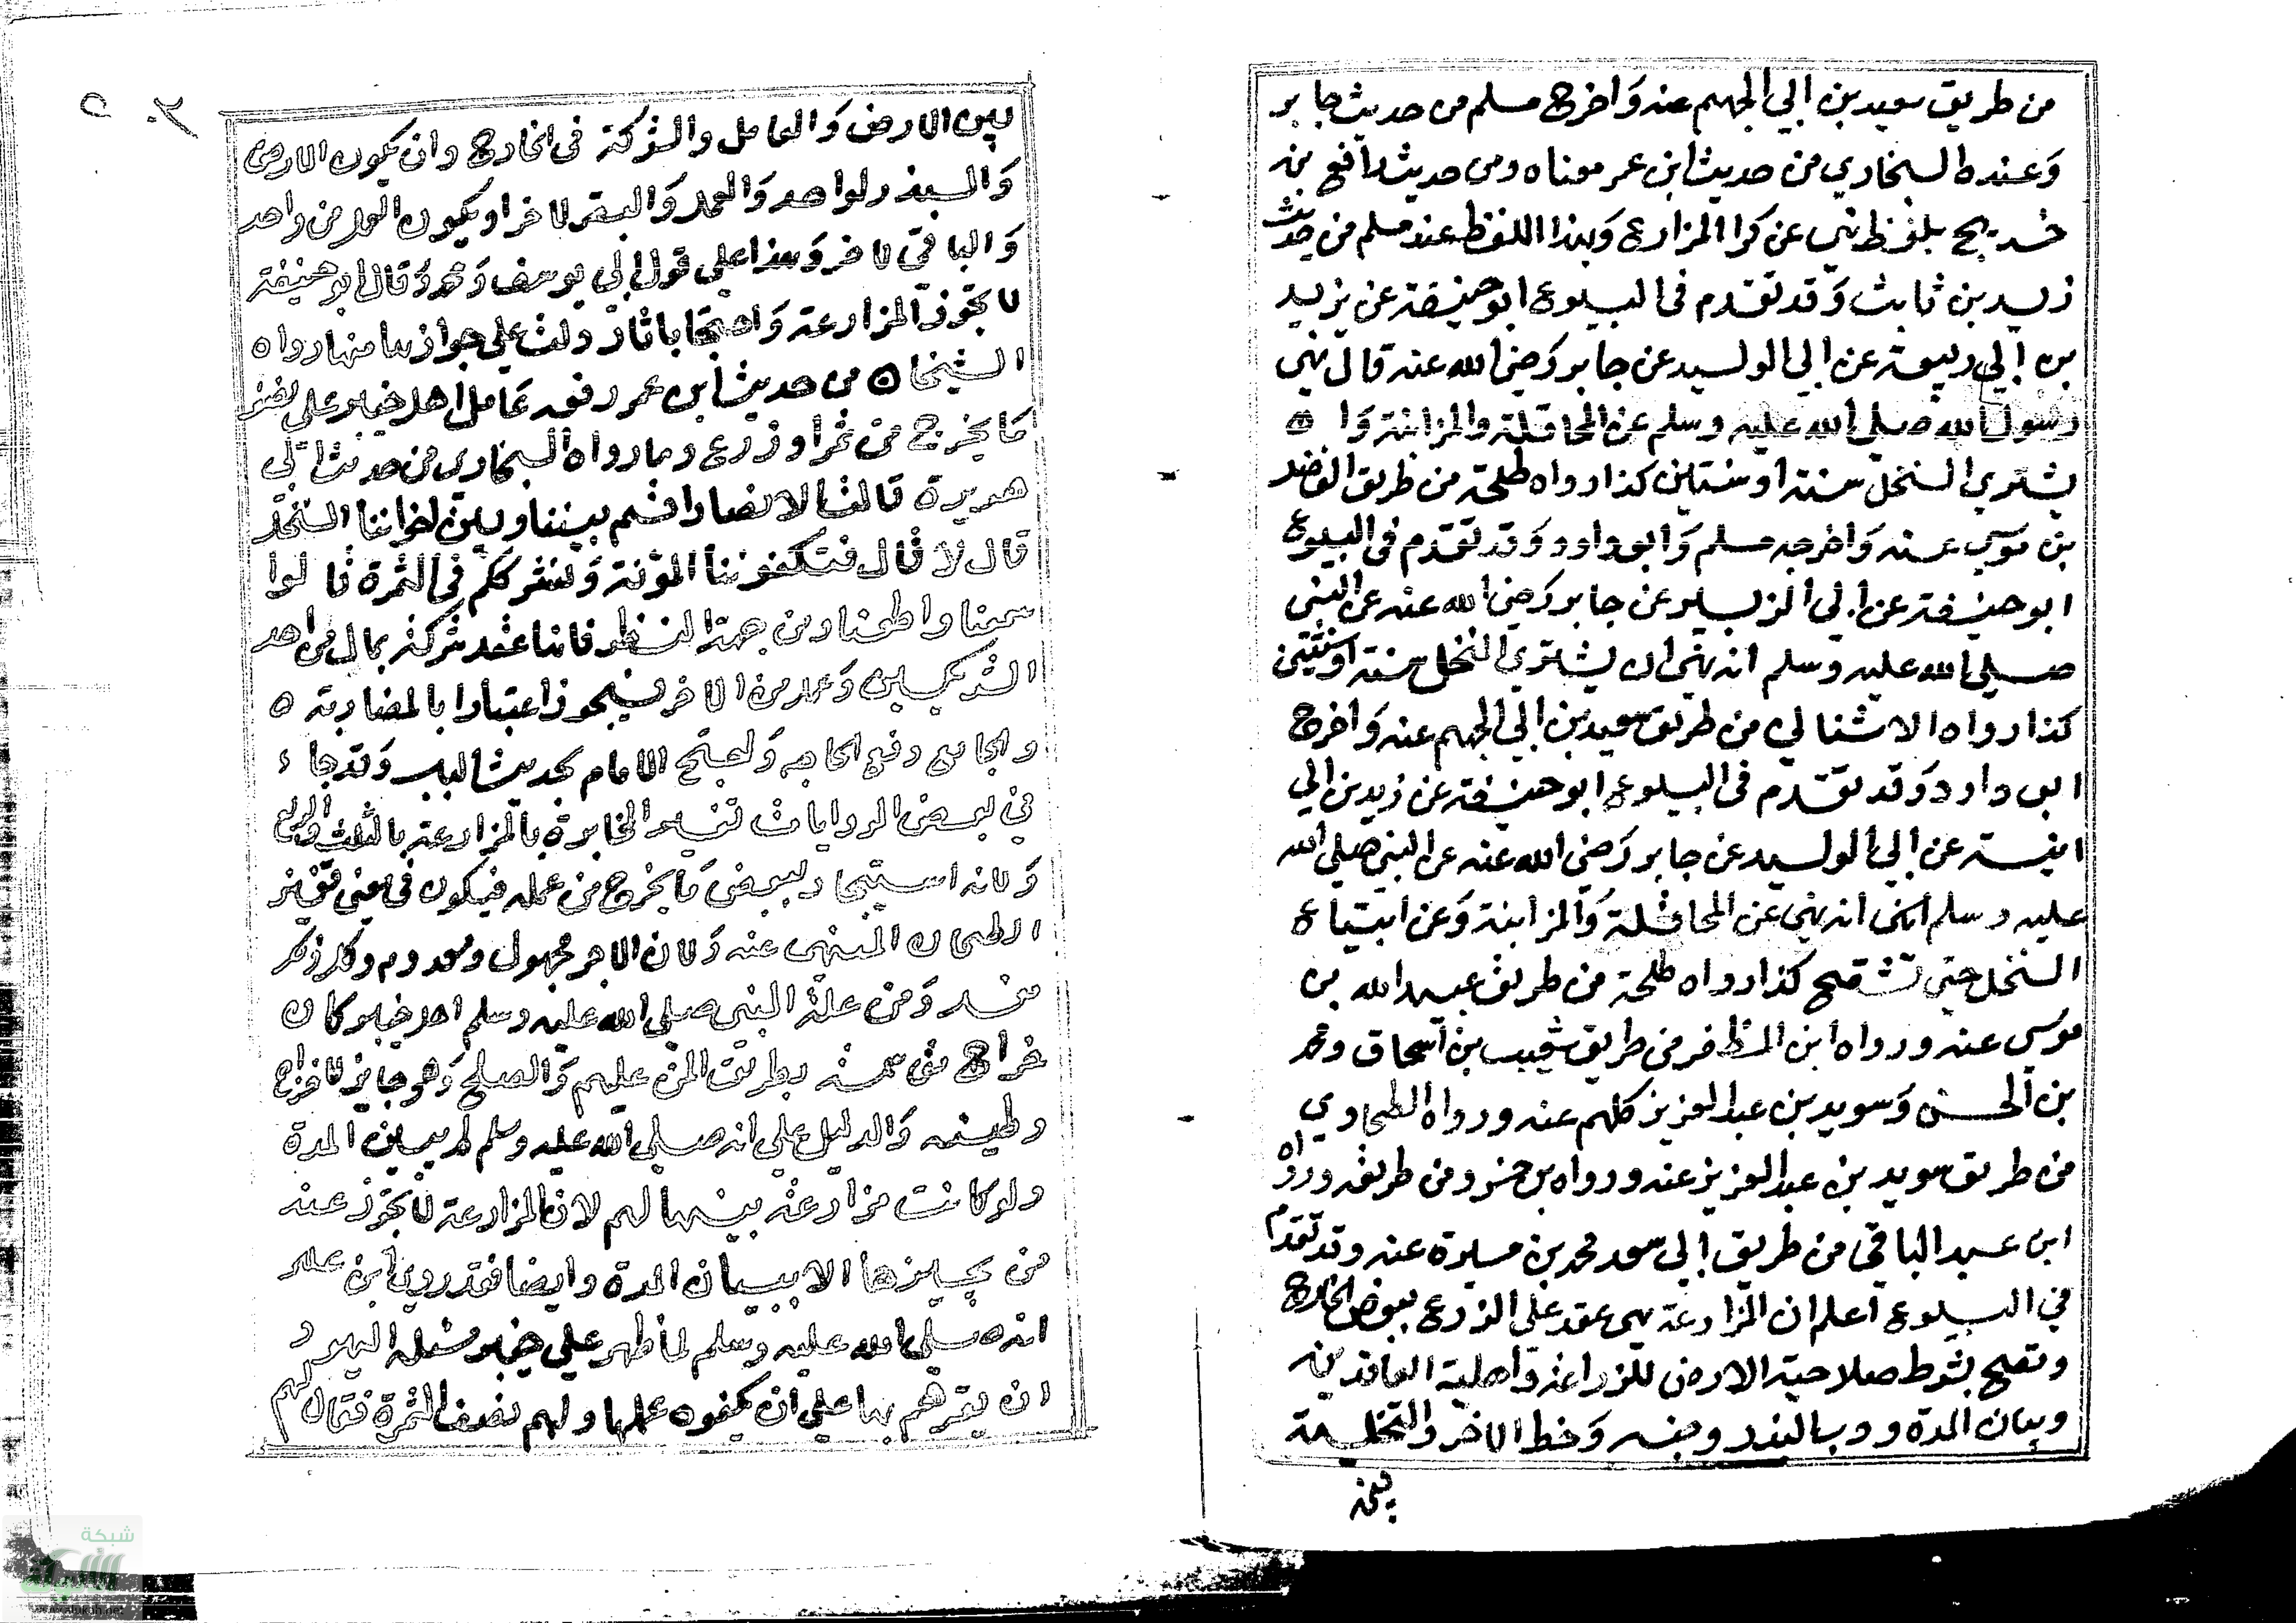 من طريق سعيد بن ابي الجهم عنه وَاخرج مسلم من حديث جابر
وَعنده البخاري من حديث ابن عمر معناه ومن حديث رافع بن
خديج بلفظ نهى عن كرا المزارع وَبهذا اللفظ عند مسلم من حديث
زيد بن ثابت وَقد تقدم في البيوع ابو حنيفة عن يزيد
بن ابي ربيعة عن ابي الوليد عن جابر رَضي الله عنه قال نهى
رسول الله صلي الله عليه وسلم عن المحاقلة والمزابنة وَان
يشتري النخل سنة او سنتين كذا رواه طلحة من طريق الفضل
بن موسي عنه وَاخرجه مسلم وَابو داود وَقد تقدم في البيوع
ابو حنيفة عن ابي الزبير عن جابر رَضي الله عنه عن النبي
صلي الله عليه وسلم انه نهى ان يشتري النخل سنة او سنتين
كذا رواه الاشناني من طريق سعيد بن ابي الجهم عنه وَاخرج
ابو داود وَقد تقدم في البيوع ابو حنيفة عن زيد بن ابي
انيسة عن ابي الوليد عن جابر رَضي الله عنه عن النبي صلي الله
عليه وسلم انه نهى عن المحاقلة وَالمزابنة وَعن ابتياع
النخل حتى تشقح كذا رواه طلحة من طريق عبيد الله بن
موسي عنه ورواه ابن المظفر من طريق شعيب بن اسحاق ومحمد
بن الحسن وَسويد بن عبد العزيز كلهم عنه ورواه الطحاوي
من طريق سويد بن عبد العزيز عنه ورواه بن خسرو من طريقه ورواه
ابن عبد الباقي من طريق ابي سعد محمد بن ميسرة عنه وقد تقدم
في البيوع اعلم ان المزارعة هي عقد علي الزرع ببعض الخارج
وتصح بشرط صلاحية الارض للزراعة وَاهلية العاقدين
وبيان المدة ورب البذر وجنسه وَحظ الاخر والتخلية
بين
بين الارض وَالعامل والشركة في الخارج وان يكون الارض
وَالبذر لواحد وَالعمل وَالبقر لاخر او يكون العمل من واحد
وَالباقي لاخر وَهذا علي قول ابي يوسف وَمحمد وَقال ابو حنيفة
لا تجوز المزارعة وَاحتجا باثار دلت علي جوازها منها رواه
الشيخان من حديث ابن عمر رفعه عامل اهل خيبر علي نصف
مَا يخرج من ثمر او زرع وما رواه البخاري من حديث ابي
هريرة قالت الانصار اقسم بيننا وبين اخواننا النخل
قال لا قال فتكفوننا المؤنة وَنشرككم في الثمرة قالوا
سمعنا واطعنا ومن جهة النظر فانها عقد شركة بمال من احد
الشريكين وَعمل من الاخر فيجوز اعتبارا بالمضاربة
والجامع دفع الحاجة وَاحتج الامام بحديث الباب وَقد جاء
في بعض الروايات تفسير المخابرة بالمزارعة بالثلث والربع
وَلانه استيجار ببعض مَا يخرج من عمله فيكون في معنى قفيز
الطحان المنهى عنه وَلان الاجر مجهول ومعدوم وكل ذلك
مفسد وَمن علة النبي صلي الله عليه وسلم اهل خيبر كان
خراج مقاسمة بطريق المن عليهم وَالصلح وَهو جايز لا خراج
وظيفة وَالدليل علي انه صلي الله عليه وسلم لم يبين المدة
ولو كانت مزارعة بينها لهم لان المزارعة لا تجوز عند
من يجيزها الا ببيان المدة وايضا فقد روي ابن عمر
انه صلي الله عليه وسلم لما ظهر علي خيبر سئله اليهود
ان يقرهم بها علي ان يكفوه عملها ولهم نصف الثمرة فقال لهم
شبكة
الألوكة
www.alukah.net